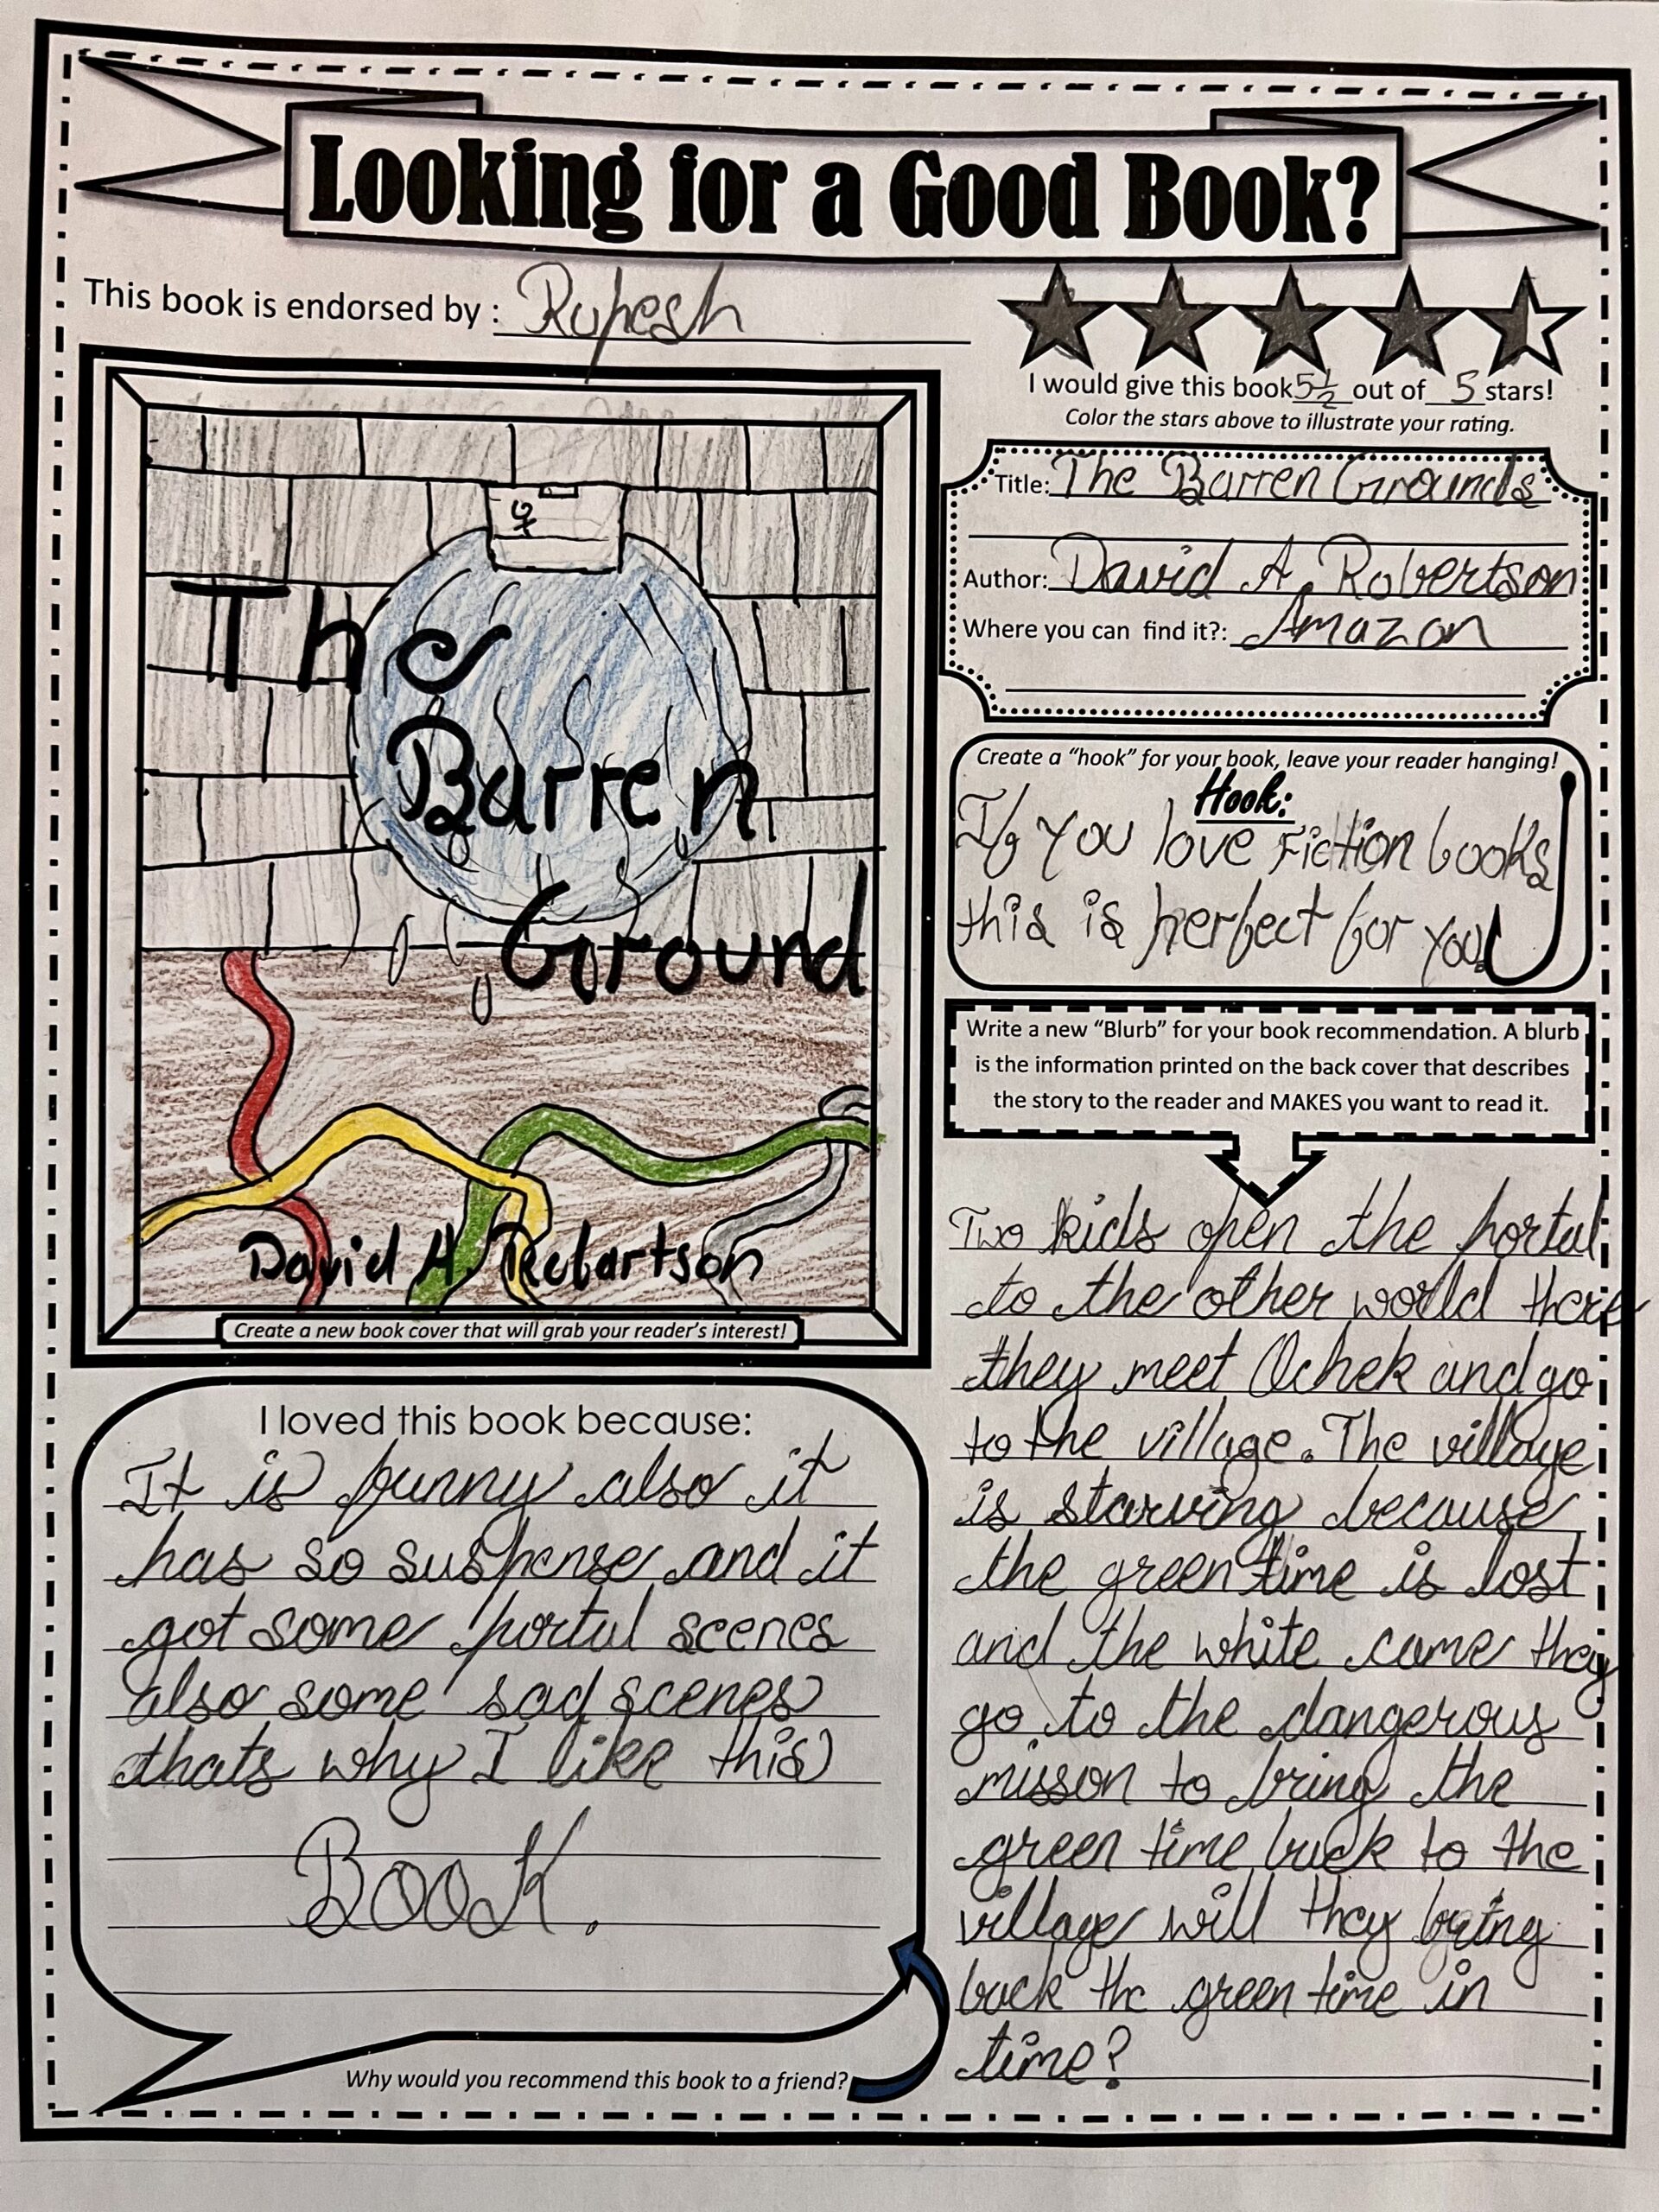 Looking for a Good Book?
This book is endorsed by : Rupesh
I would give this book 5½ out of 5 stars!
Color the stars above to illustrate your rating.
Title: The Barren Grounds
Author: David A. Robertson
Where you can find it?: Amazon
The
Barren
Ground
David A. Robartson
Create a new book cover that will grab your reader's interest!
Create a "hook" for your book, leave your reader hanging!
Hook:
If you love Fiction books
this is perfect for you!
Write a new "Blurb" for your book recommendation. A blurb
is the information printed on the back cover that describes
the story to the reader and MAKES you want to read it.
Two kids open the portal
to the other world there
they meet Ochek and go
to the village. The village
is starving because
the green time is lost
and the white came they
go to the dangerous
misson to bring the
green time back to the
village will they bring
back the green time in
time?
I loved this book because:
It is funny also it
has so suspense and it
got some portal scenes
also some sad scenes
thats why I like this
BOOK.
Why would you recommend this book to a friend?